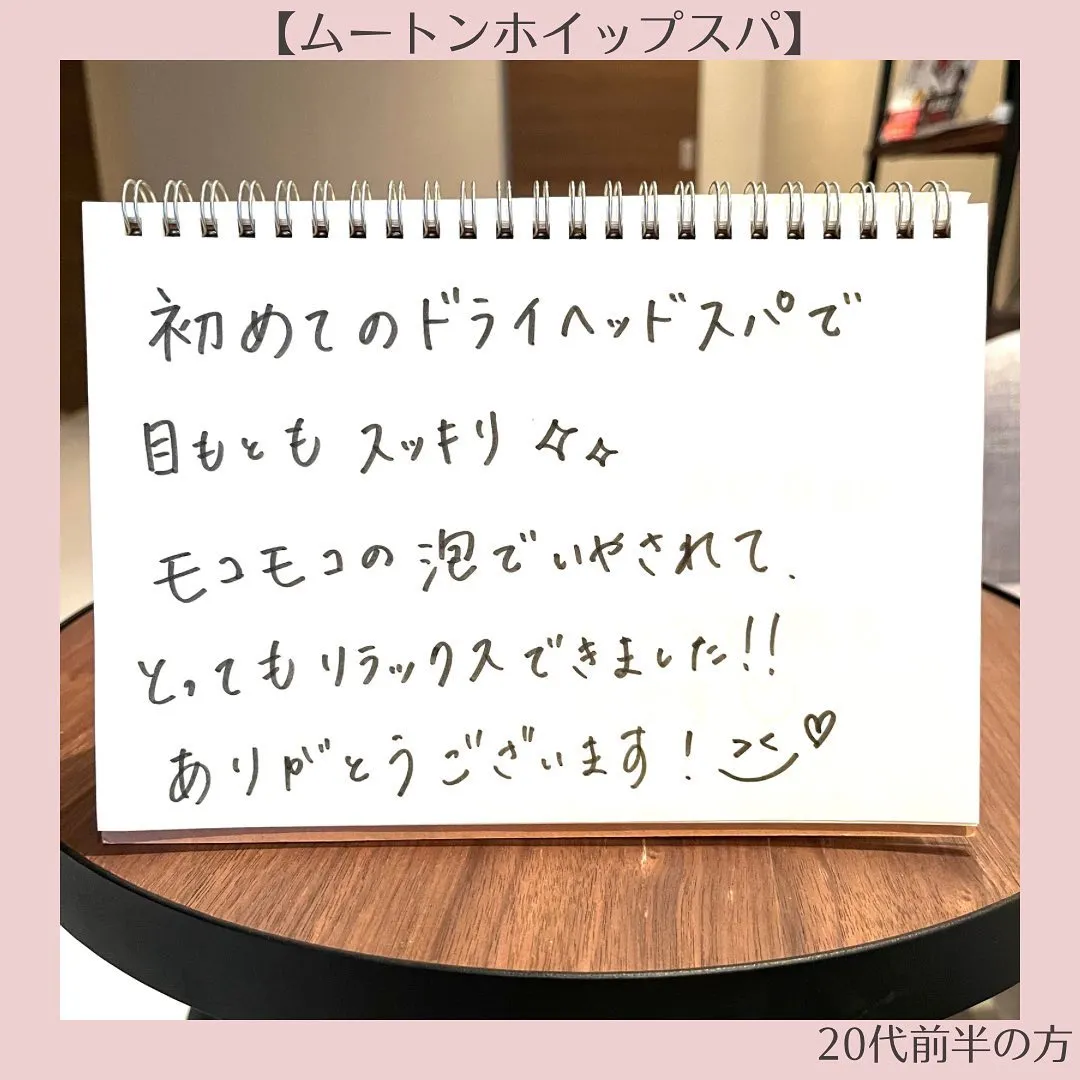 【ムートンホイップスパ】
初めてのドライヘッドスパで
目もともスッキリ
モコモコの泡でいやされて、
とってもリラックスできました!!
ありがとうございます!
20代前半の方